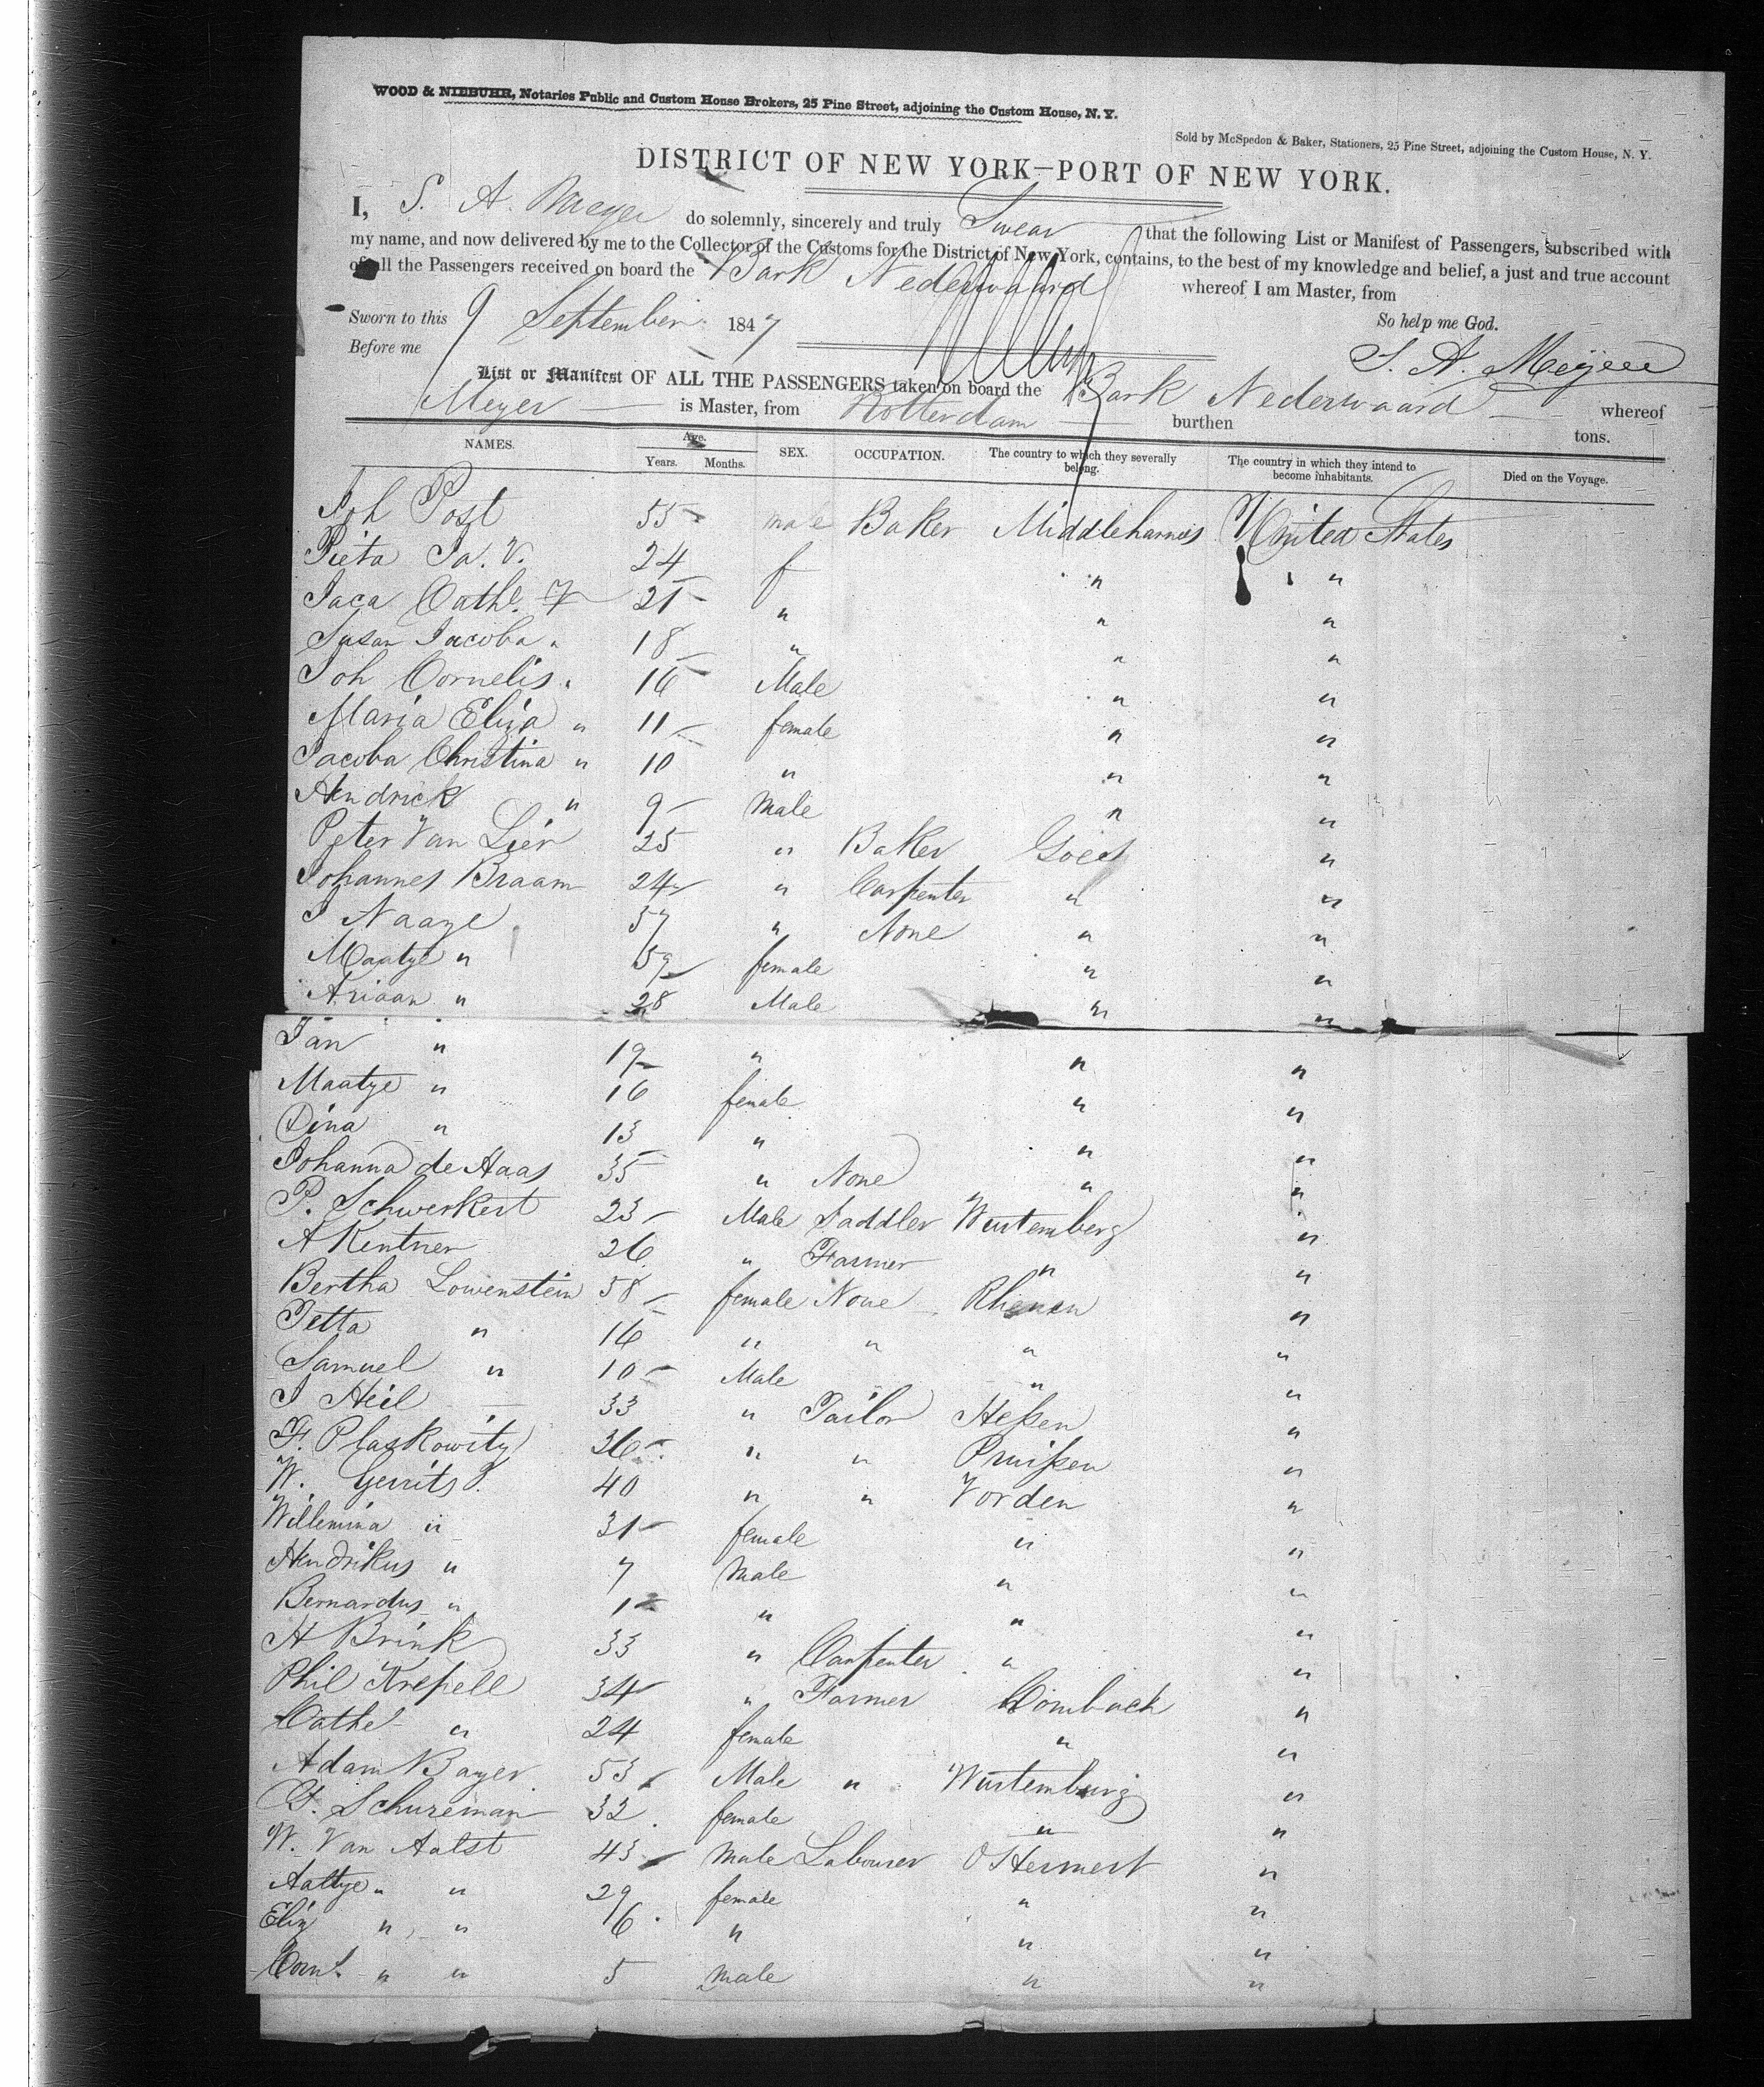 WOOD & NIEBUHR, Notaries Public and Custom House Brokers, 25 Pine Street, adjoining the Custom House, N. Y.
Sold by McSpedon & Baker, Stationers, 25 Pine Street, adjoining the Custom House, N. Y.
DISTRICT OF NEW YORK—PORT OF NEW YORK.
I, S. A. Meyer do solemnly, sincerely and truly Swear that the following List or Manifest of Passengers, subscribed with
my name, and now delivered by me to the Collector of the Customs for the District of New York, contains, to the best of my knowledge and belief, a just and true account
of all the Passengers received on board the Bark Nederwaard whereof I am Master, from
Sworn to this 9 September 1847 So help me God.
Before me S. A. Meijer
List or Manifest OF ALL THE PASSENGERS taken on board the Bark Nederwaard whereof
Meyer is Master, from Rotterdam burthen tons.
NAMES. Age. Years. Months. SEX. OCCUPATION. The country to which they severally belong. The country in which they intend to become inhabitants. Died on the Voyage.
Joh Post 55 male Baker Middleharnis United States
Pieta Ja. V. 24 f " "
Jaca Cathe. 21 " " "
Susan Jacoba " 18 " " "
Joh Cornelis " 16 Male " "
Maria Eliza " 11 female " "
Jacoba Christina " 10 " " "
Hendrick " 9 Male " "
Peter Van Lier 25 " Baker Goes "
Johannes Braam 24 " Carpenter " "
J Naaye 57 " None " "
Maatye " 59 female " "
Ariaan " 28 Male " "
Jan " 19 " " "
Maatye " 16 female " "
Dina " 13 " " "
Johanna de Haas 35 " None " "
P. Schwerkert 23 Male Saddler Wurtemberg "
A Kentner 26 " Farmer " "
Bertha Lowenstein 58 female None Rhenen "
Jetta " 16 " " " "
Samuel " 10 Male " "
J Heil 33 " Tailor Hessen "
F. Plaskowitz 36 " " Pruissen "
W. Gerrits 40 " " Vorden "
Willemina " 31 female " "
Hendrikus " 7 Male " "
Bernardus " 1 " " "
H Brink 33 " Carpenter " "
Phil Krepell 34 " Farmer Combach "
Cathe " 24 female " "
Adam Bayer 53 Male " Wurtemburg "
G. Schureman 32 female " "
W. Van Aalst 43 male Labourer "
Aaltye " " 29 female " "
Eliz " " 6 " " "
Corn. " " 5 male " "